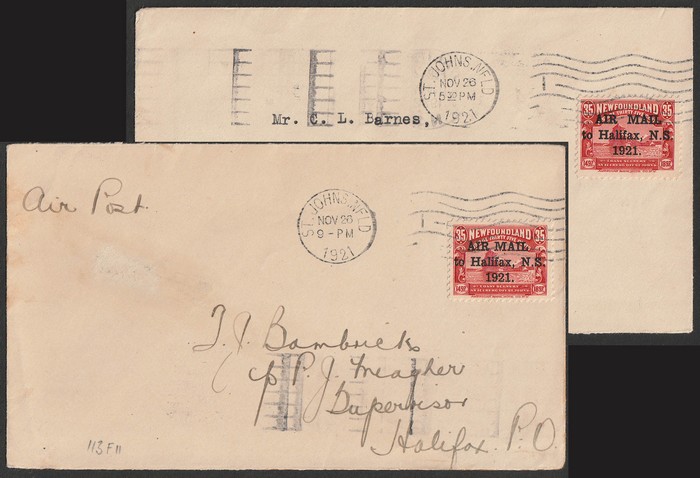 ST. JOHN'S, NFLD
NOV 26
5 30 PM
1921
35 NEWFOUNDLAND 35
AIR MAIL
to Halifax, N.S.
1921.
Mr. C. L. Barnes,
Air Post
ST. JOHN'S, NFLD
NOV 26
9 - PM
1921
35 NEWFOUNDLAND 35
THIRTY FIVE
AIR MAIL
to Halifax, N.S.
1921.
T. J. Bambrick
c/o P. J. Meagher
Supervisor
Halifax. P.O.
113F11